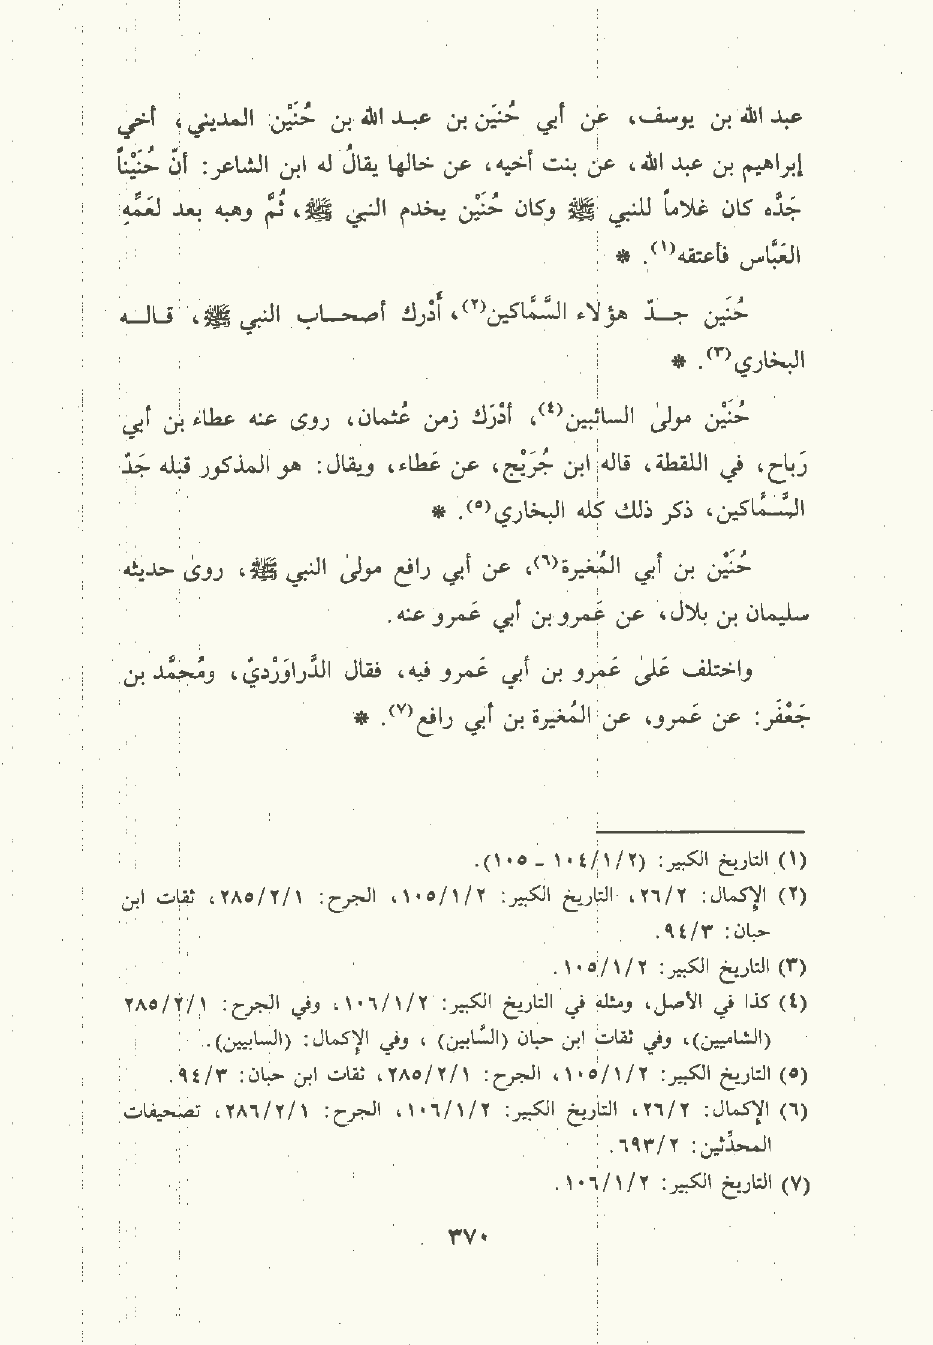 عبد الله بن يوسف، عن أبي حُنَين بن عبـد الله بن حُنَيْن المديني، أخي
إبراهيم بن عبد الله، عن بنت أخيه، عن خالها يقالُ له ابن الشاعر: أنّ حُنَيْناً
جَدَّه كان غلاماً للنبي ﷺ وكان حُنَيْن يخدم النبي ﷺ، ثُمَّ وهبه بعد لعَمِّهِ
العَبَّاس فأعتقه(١). *
حُنَين جــدّ هؤلاء السَّمَّاكين(٢)، أَدْرك أصحــاب النبي ﷺ، قـالــه
البخاري(٣). *
حُنَيْن مولىٰ السائبين(٤)، أدْرَك زمن عُثمان، روى عنه عطاء بن أبي
رَباح، في اللقطة، قاله ابن جُرَيْج، عن عَطاء، ويقال: هو المذكور قبله جَدّ
السَّــمَّاكين، ذكر ذلك كله البخاري(٥). *
حُنَيْن بن أبي المُغيرة(٦)، عن أبي رافع مولىٰ النبي ﷺ، روىٰ حديثه
سليمان بن بلال، عن عَمرو بن أبي عَمرو عنه.
واختلف عَلىٰ عَمرو بن أبي عَمرو فيه، فقال الدَّراوَرْديّ، ومُحمَّد بن
جَعْفَر: عن عَمرو، عن المُغيرة بن أبي رافع(٧). *
(١) التاريخ الكبير: (١٠٤/١/٢ ـ ١٠٥).
(٢) الإكمال: ٢٦/٢، التاريخ الكبير: ١٠٥/١/٢، الجرح: ٢٨٥/٢/١، ثقات ابن
حبان: ٩٤/٣.
(٣) التاريخ الكبير: ١٠٥/١/٢.
(٤) كذا في الأصل، ومثله في التاريخ الكبير: ١٠٦/١/٢، وفي الجرح: ٢٨٥/٢/١
(الشاميين)، وفي ثقات ابن حبان (السَّابين) ، وفي الإكمال: (السابيين).
(٥) التاريخ الكبير: ١٠٥/١/٢، الجرح: ٢٨٥/٢/١، ثقات ابن حبان: ٩٤/٣.
(٦) الإكمال: ٢٦/٢، التاريخ الكبير: ١٠٦/١/٢، الجرح: ٢٨٦/٢/١، تصحيفات
المحدِّثين: ٦٩٣/٢.
(٧) التاريخ الكبير: ١٠٦/١/٢.
٣٧٠